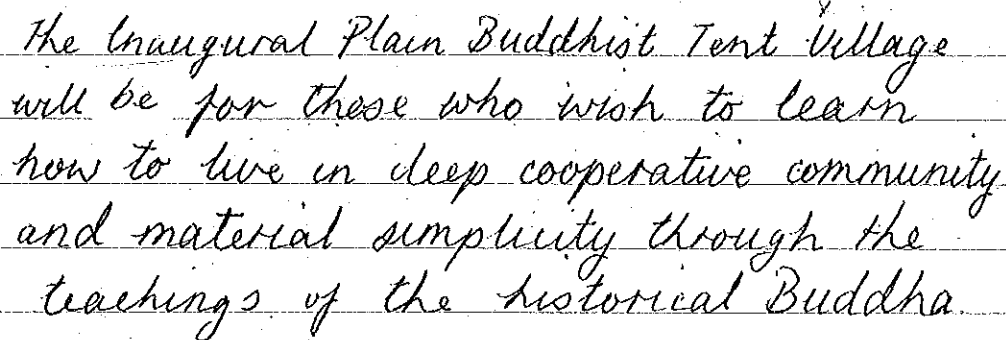 The Inaugural Plain Buddhist Tent Village
will be for those who wish to learn
how to live in deep cooperative community
and material simplicity through the
teachings of the historical Buddha.